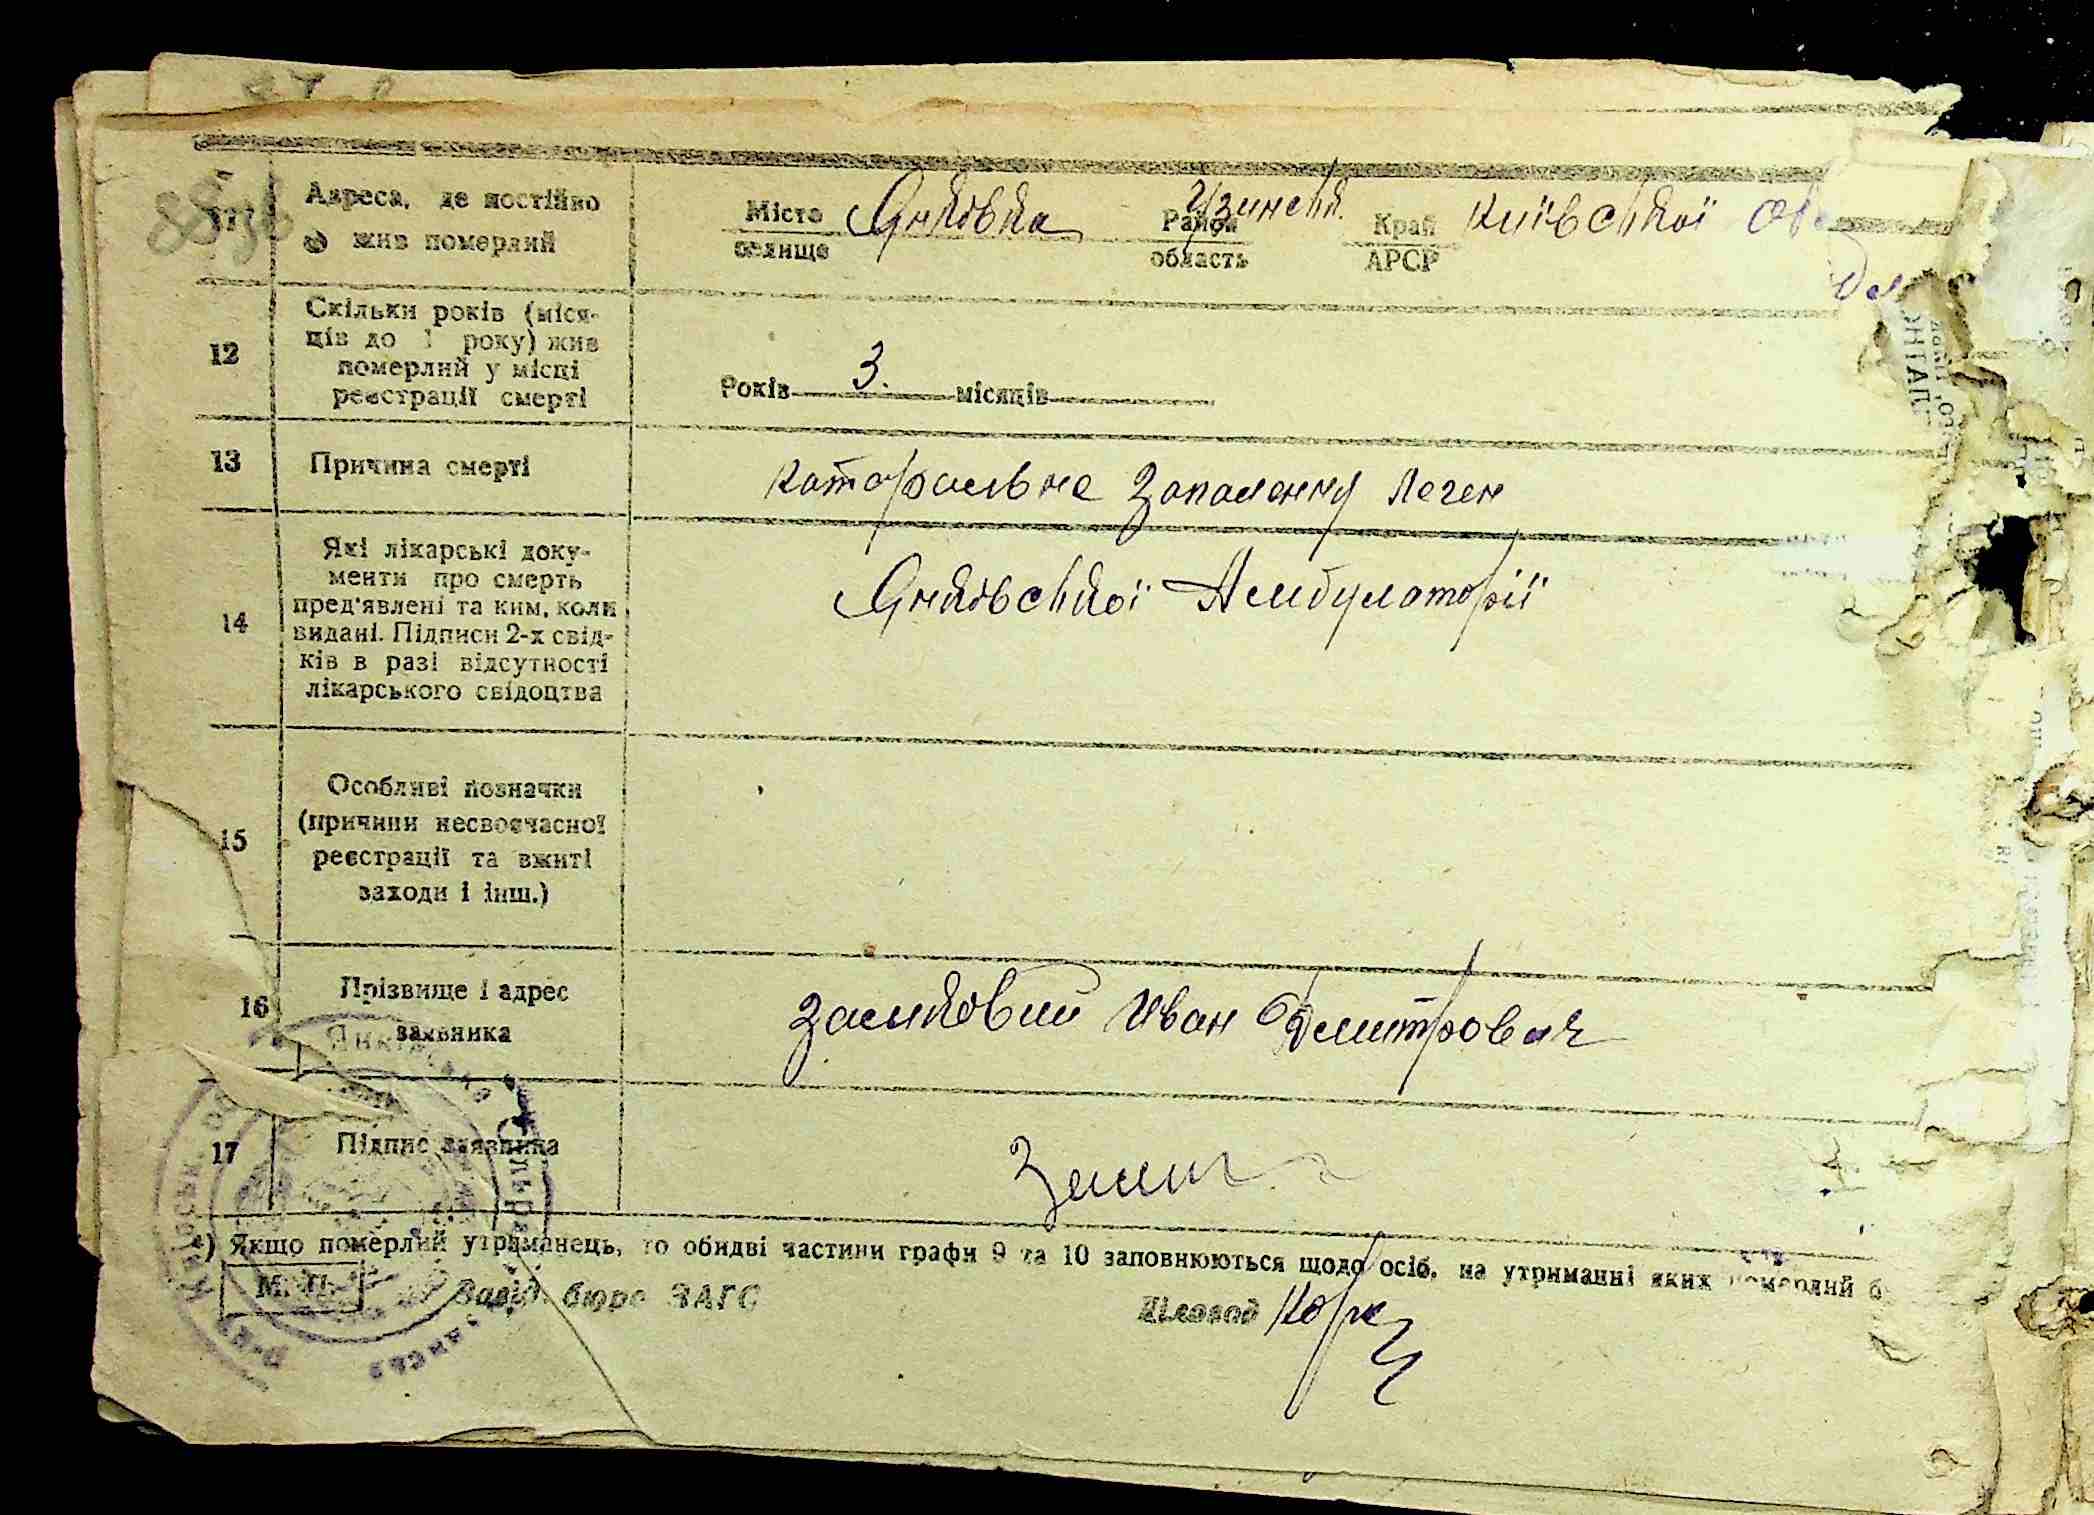 11
Адреса, де постійно
жив померлий
Місто
селище
Янківка
Район
область
Узинськ.
Край
АРСР
Київської
12
Скільки років (міся-
ців до 1 року) жив
померлий у місці
реєстрації смерті
Років 3. місяців
13
Причина смерті
Катаральне Запалення Леген
14
Які лікарські доку-
менти про смерть
пред'явлені та ким, коли
видані. Підписи 2-х свід-
ків в разі відсутності
лікарського свідоцтва
Янківської Амбулаторії
15
Особливі позначки
(причини несвоєчасної
реєстрації та вжиті
заходи і інш.)
16
Прізвище і адрес
заявника
Замковий Иван Дмитрович
17
Підпис заявника
*) Якщо померлий утриманець, то обидві частини графи 9 та 10 заповнюються щодо осіб, на утриманні яких померлий б
М. П.
Завід. бюро ЗАГС
Діловод